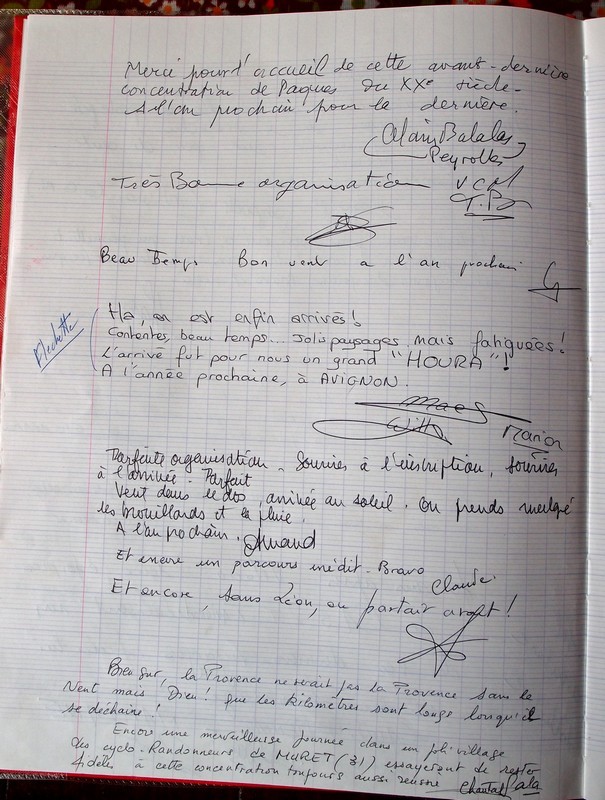 Merci pour l'accueil de cette avant-dernière
concentration de Paques du XXe siècle.
A l'an prochain pour la dernière.
Alain Balalas
Peyrolles
Très Bonne organisation VCAL
T.B
Beau Temps Bon vent a l'an prochain
Ha, on est enfin arrivés!
Contentes, beau temps... jolis paysages, mais fatiguées!
L'arrivé fut pour nous un grand "HOURA"!
A l'année prochaine, à AVIGNON.
Maes
Willy Marion
Parfaite organisation. Sourires à l'inscription, sourires
à l'arrivée. Parfait
Vent dans le dos, arrivée au soleil. On prends malgré
les brouillards et la pluie.
A l'an prochain. Amand
Et encore un parcours inédit. Bravo
Claude.
Et encore, sans Léon, on partait avant!
Bien sur, la Provence ne serait pas la Provence sans le
Vent mais Dieu! que les kilomètres sont longs lorsqu'il
se déchaine!
Encore une merveilleuse journée dans un joli village
des cyclo-Randonneurs de MURET (31) essayeront de rester
fidèles à cette concentration toujours aussi réussie Chantal